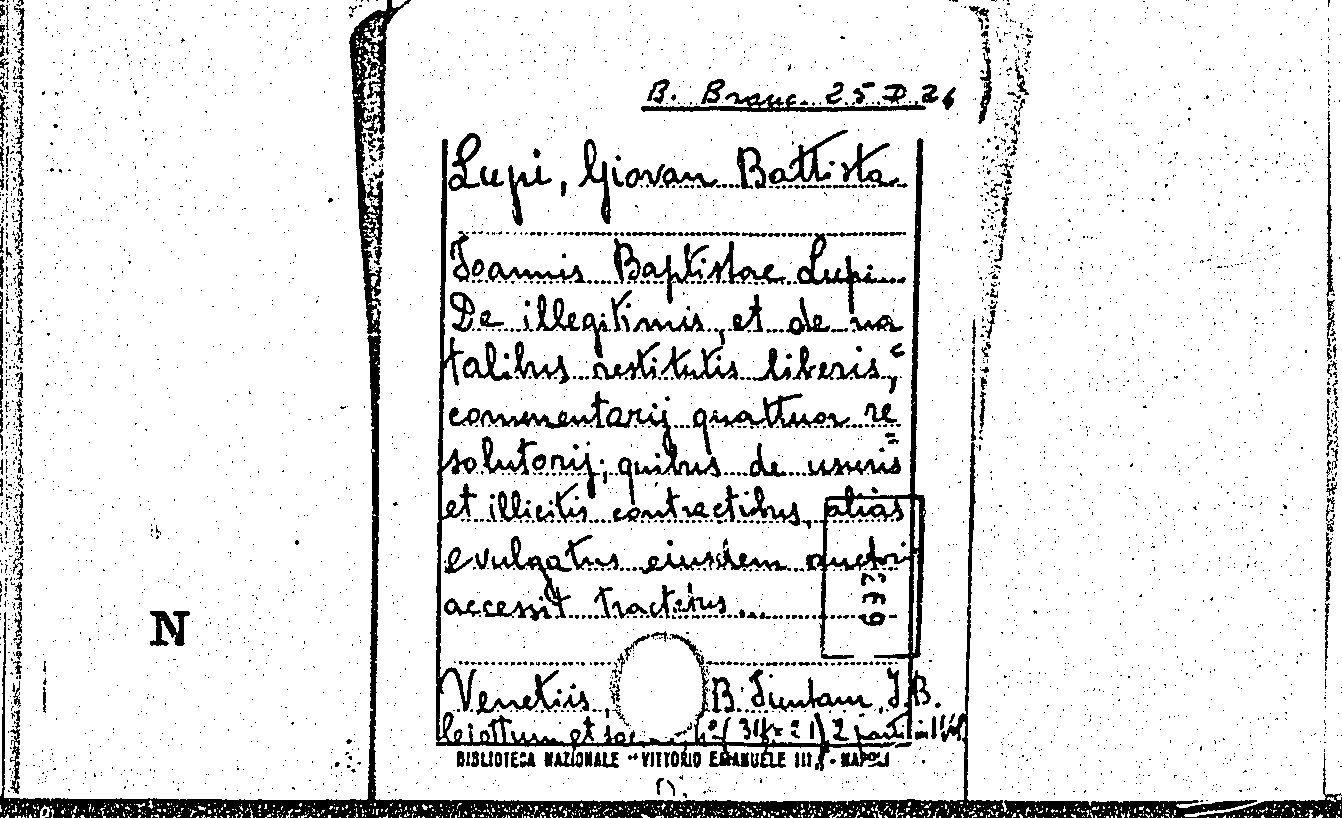 B. Branc. 25 D 26
Lupi, Giovan Battista
Joannis Baptistae Lupi
De illegitimis, et de na
talibus restitutis liberis,=
commentarij quattuor re
solutorij; quibus de usuris=
et illicitis contractibus, alias
evulgatus eiusdem auctori
accessit tractatus...
633
N
Venetiis, B. Juntam, J.B.
Ciottum et 2 parti in 1 Vol.
BIBLIOTECA NAZIONALE "VITTORIO EMANUELE III" - NAPOLI